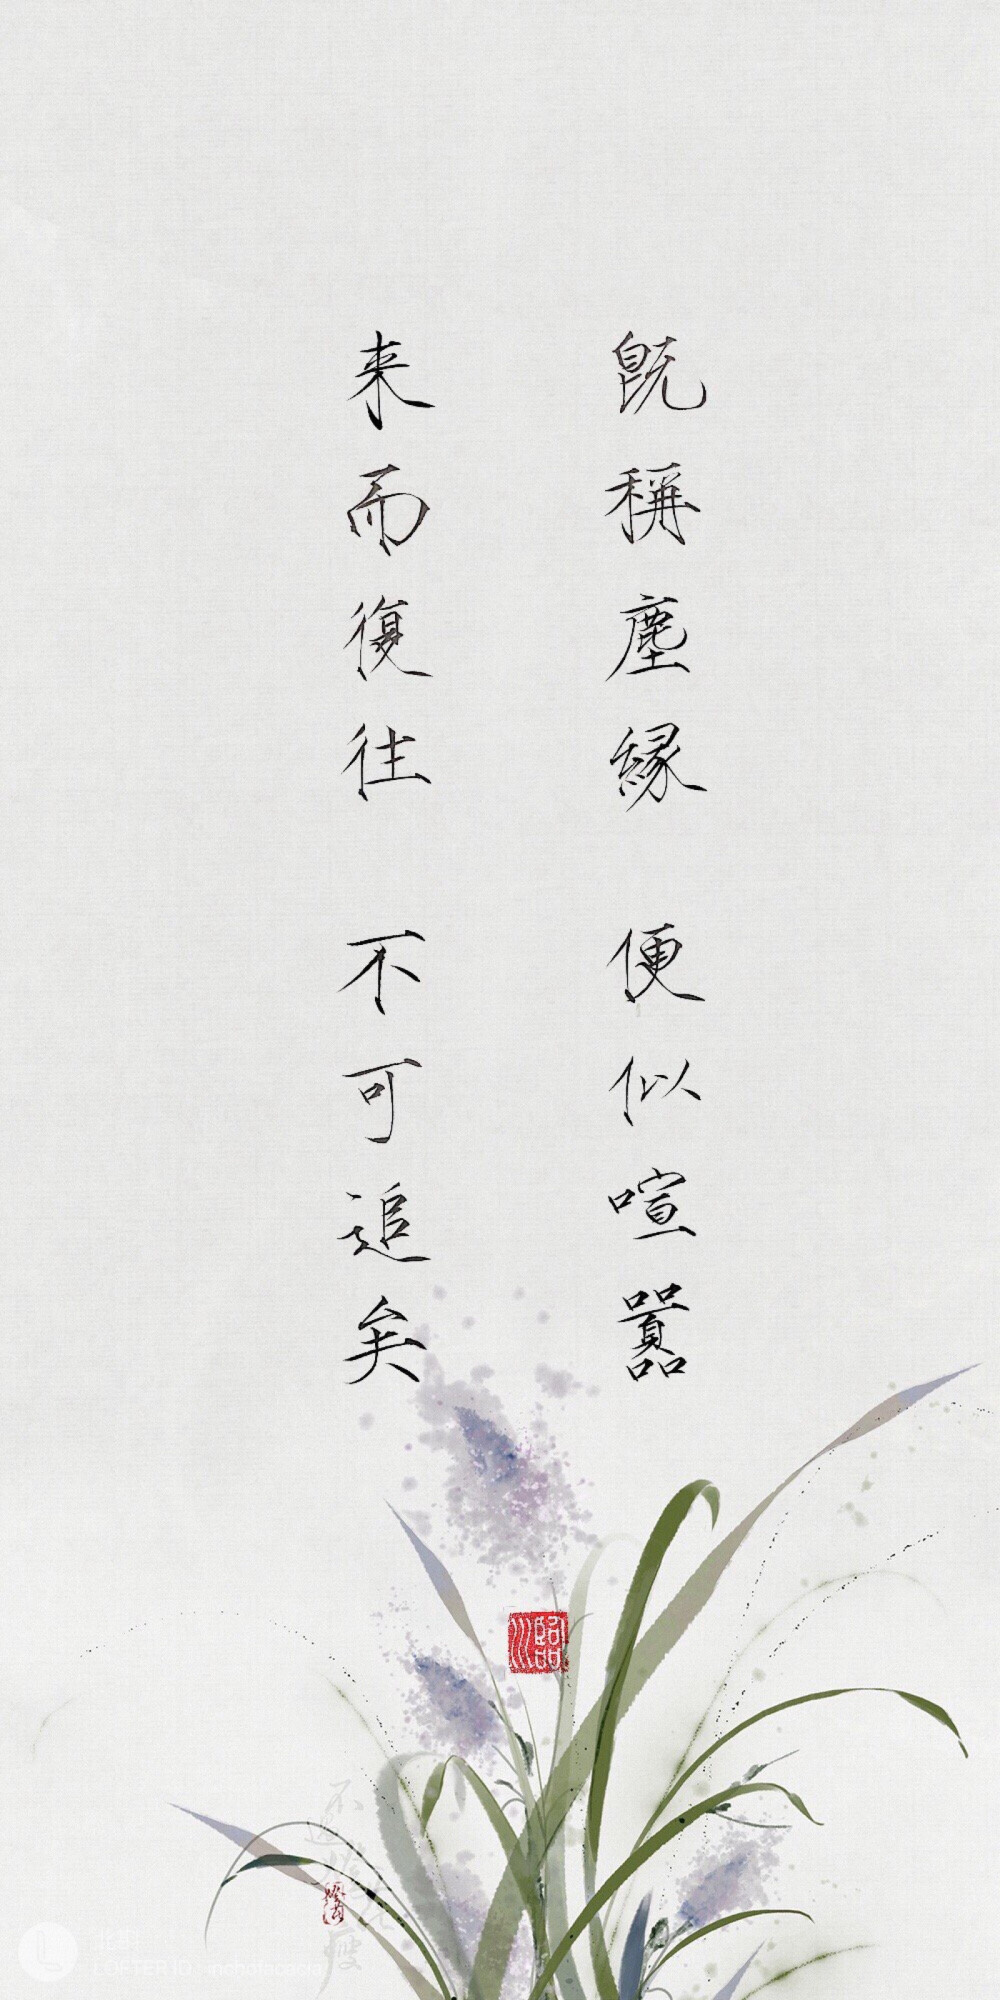 既稱塵緣 便似喧囂
来而復往 不可追矣
臨川